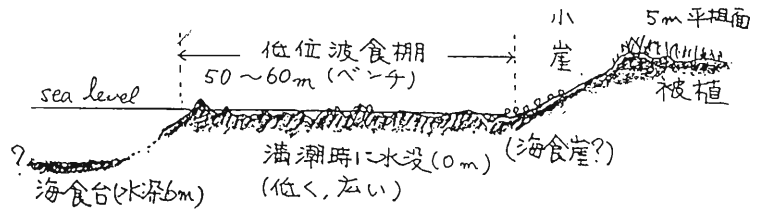 小崖
5m平坦面
低位波食棚
50～60m(ベンチ)
sea level
被植
?
満潮時に水没(0m)
(海食崖?)
海食台(水深6m)
(低く,広い)